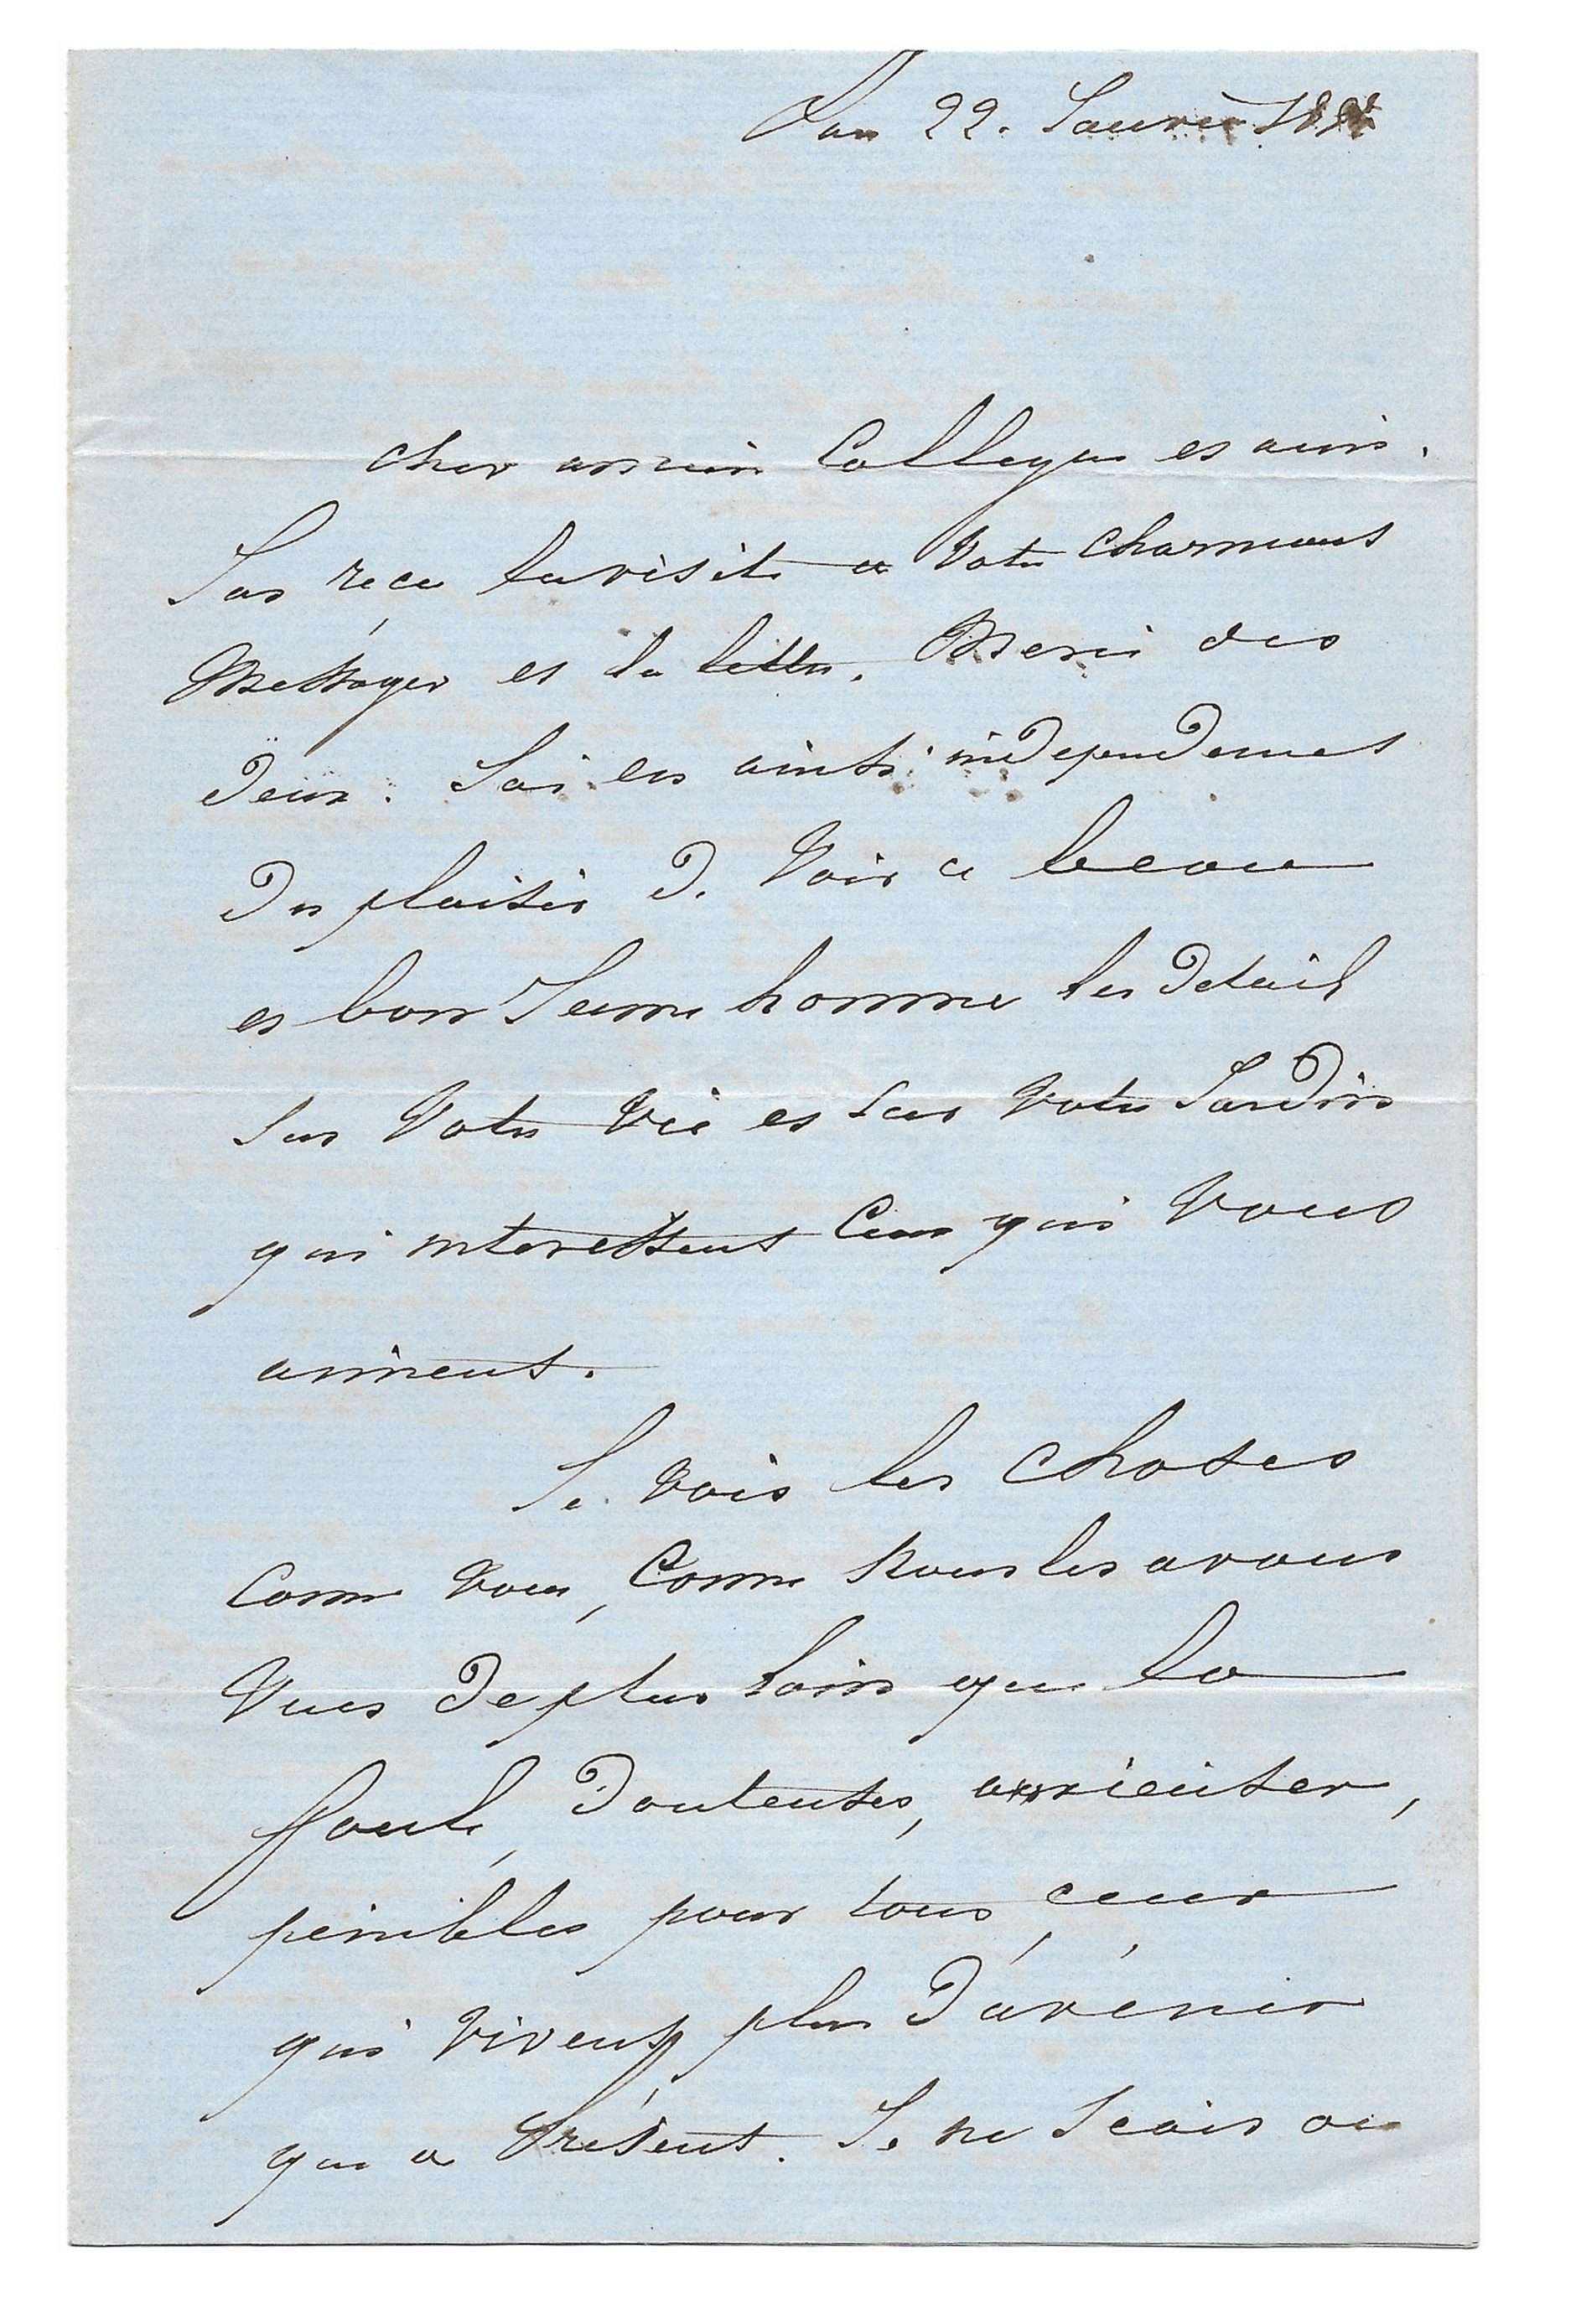 22. Janvier 18
cher ancien Collegue et ami.
J'ai reçu la visite de Votre charmant
Messager et la lettre. Merci des
deux. J'ai eu ainsi independament
du plaisir de Voir ce beau
et bon Jeune homme les detail
sur Votre Vie et sur Votre Jardin
qui interessent Ceux qui Vous
aiment.
Je Vois les choses
Comme Vous, Comme Nous les avons
Vues de plus loin que la
foule, douteuses, anxieuses,
penibles pour tous ceux
qui Vivent plus d'avenir
que de Present. Je ne Scais ou